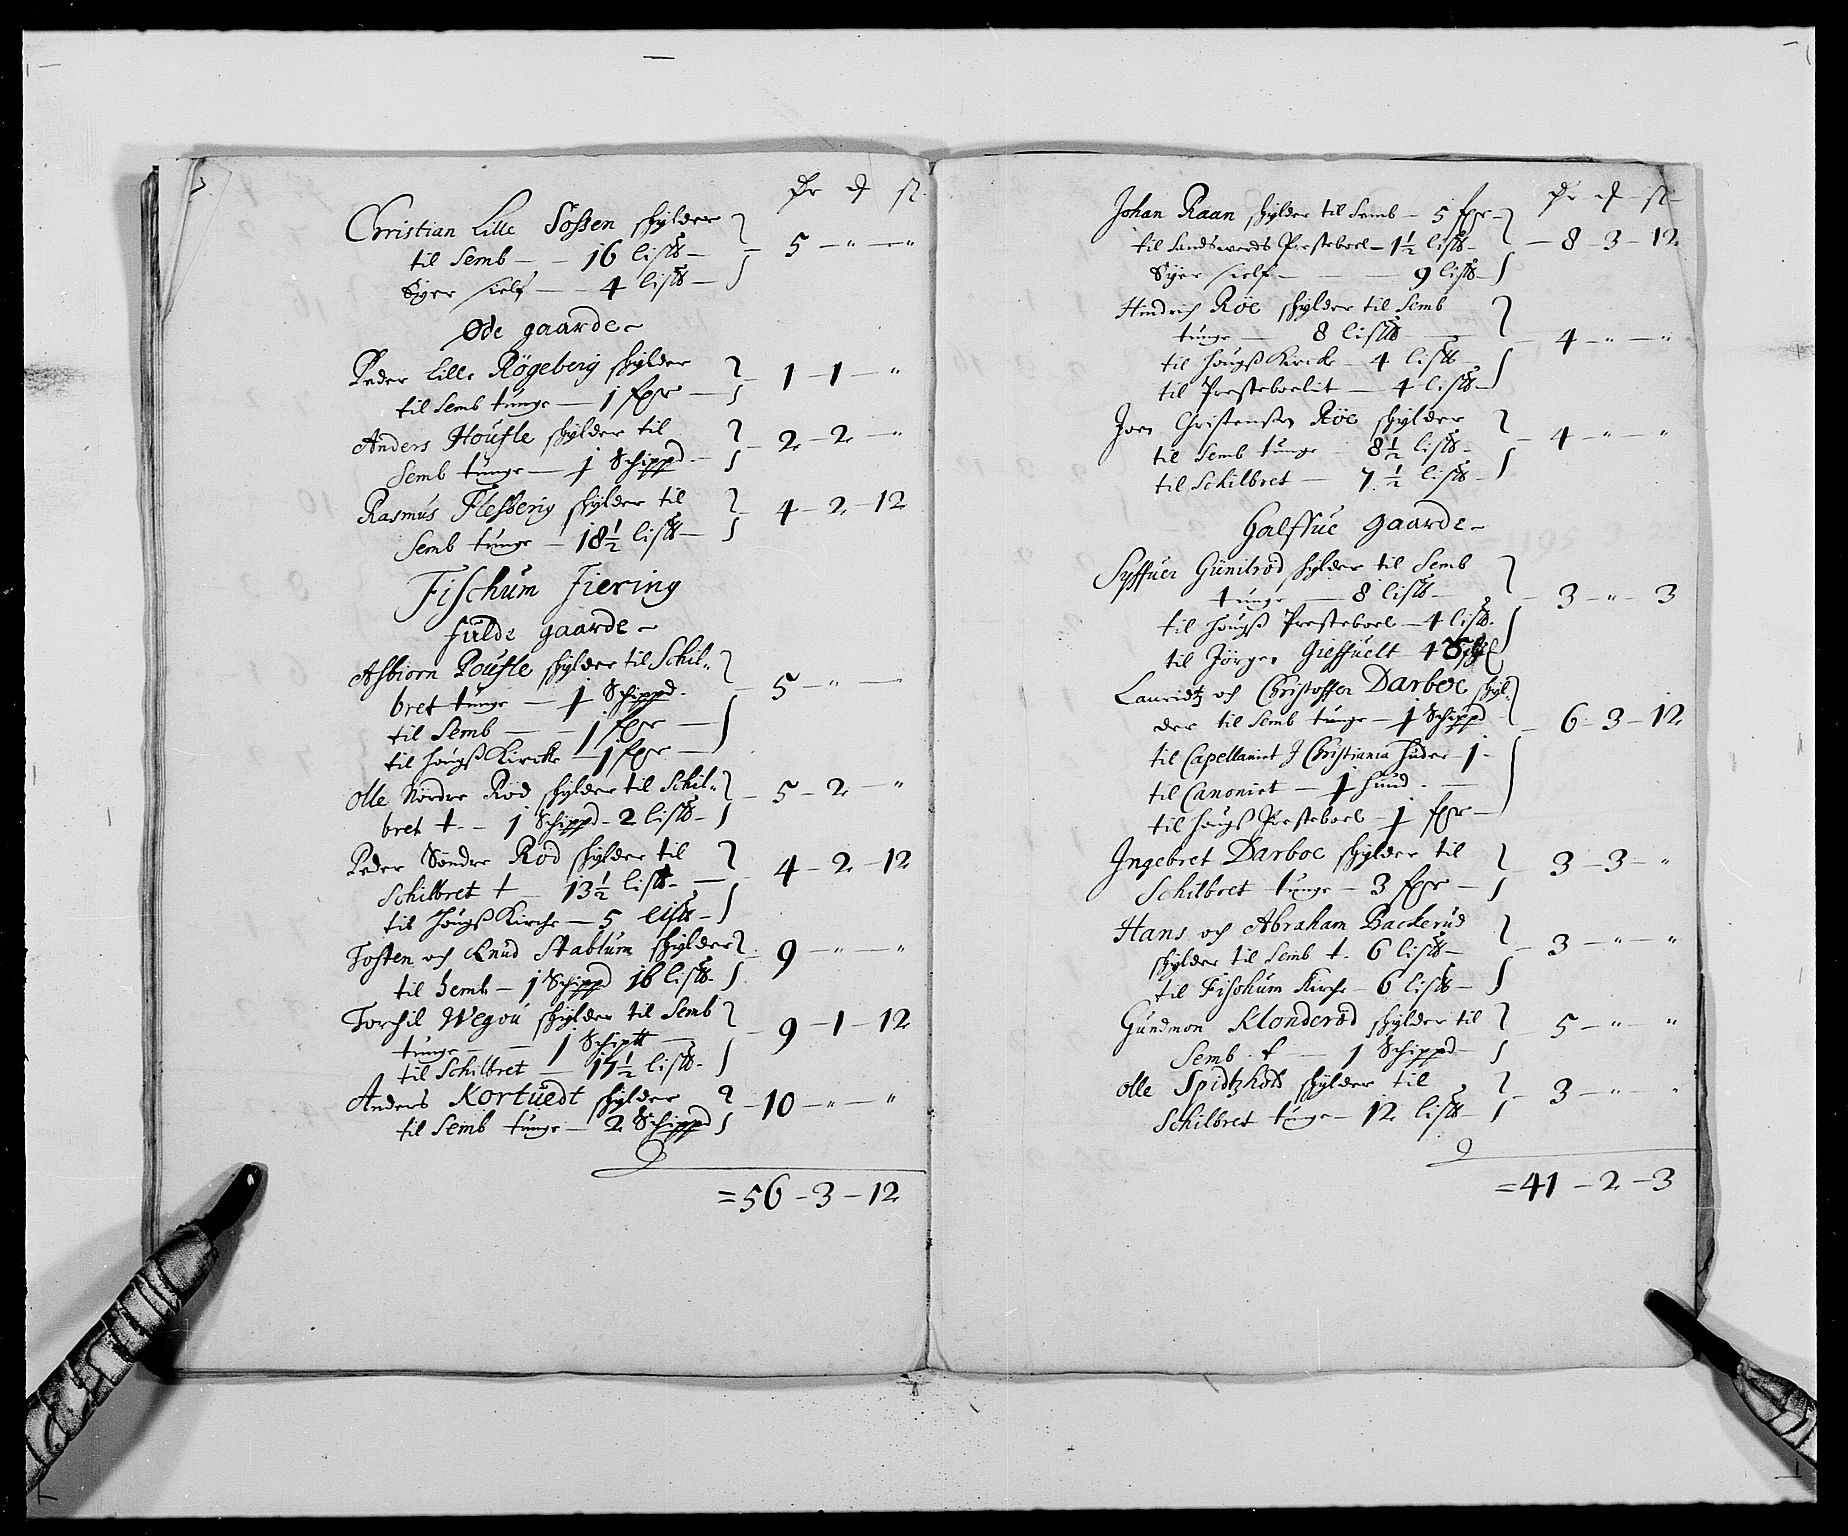 Christian Lille Sossen skylder
til Semb — 16 lis℔ — 5 — „ — „
Eyer sielf — 4 lis℔ —
Øde gaarde
Peder Lille Rögeberg skylder
til Semb tunge — 1 fxr — 1 — 1 — „
Anders Houfle skylder til
Semb tunge — 1 Schippd — 2 — 2 — „
Rasmus Flesberig skylder til
Semb tunge — 18½ lis℔ — 4 — 2 — 12
Fischum Fiering
fulde gaarde
Asbiorn Poufle skylder til Schil„
bret tunge — 1 Schippd. — 5 — „ —
til Semb — 1 fxr —
til Hougs Kircke — 1 fxr —
Olle Nördre Röd skylder til Schil„
bret t. — 1 Schippd — 2 lis℔ — 5 — 2 — „
Peder Söndre Röd skylder til
Schilbret t — 13½ lis℔ — 4 — 2 — 12
til Hougs Kirche — 5 lis℔ —
Tosten och Knud Stablum skylder
til Semb — 1 Schippd 16 lis℔ — 9 — „ — „
Torchil Wegou skylder til Semb
tunge — 1 Schiptt — 9 — 1 — 12
til Schilbret — 17½ lis℔ —
Anders Kortuedt skylder
til Semb tunge — 2 Schippd — 10 — „ — „
= 56 — 3 — 12
Johan Raan skylder til Semb — 5 fxr —
til Sandswerds Presteboel — 1½ lis℔ — 8 — 3 — 12
Eyer sielf — 9 lis℔ —
Hindrich Röe skylder til Semb
tunge — 8 lis℔ — 4 — „ — „
til Hougs Kircke — 4 lis℔ —
til Presteboelit — 4 lis℔ —
Joen Christensen Röe skylder
til Semb tunge — 8½ lis℔ — 4 — „ — „
til Schilbret — 7½ lis℔ —
Halffue gaarde
Syffuer Günilröd skylder til Semb
tunge — 8 lis℔ — 3 — „ — 3
til Hougs Presteboel — 4 lis℔ —
til Jörgen Gieffuelt 4
Lauridtz och Christoffer Darboe skyl„
der til Semb tunge — 1 Schippd — 6 — 3 — 12
til Capellaniet J Christiania huder — 1 —
til Canoniet — 1 hund. —
til Hougs Presteboel — 1 fxr —
Ingebret Darboe skylder til
Schilbret tunge — 3 fxr — 3 — 3 — „
Hans och Abraham Backerud
skylder til Semb t. 6 lis℔ — 3 — „ — „
til Fischum Kirche — 6 lis℔ —
Gundmon Klonderöd skylder til
Semb. t — 1 Schippd — 5 — „ — „
Olle Spidtzholt skylder til
Schilbret tunge — 12 lis℔ — 3 — „ — „
= 41 — 2 — 3